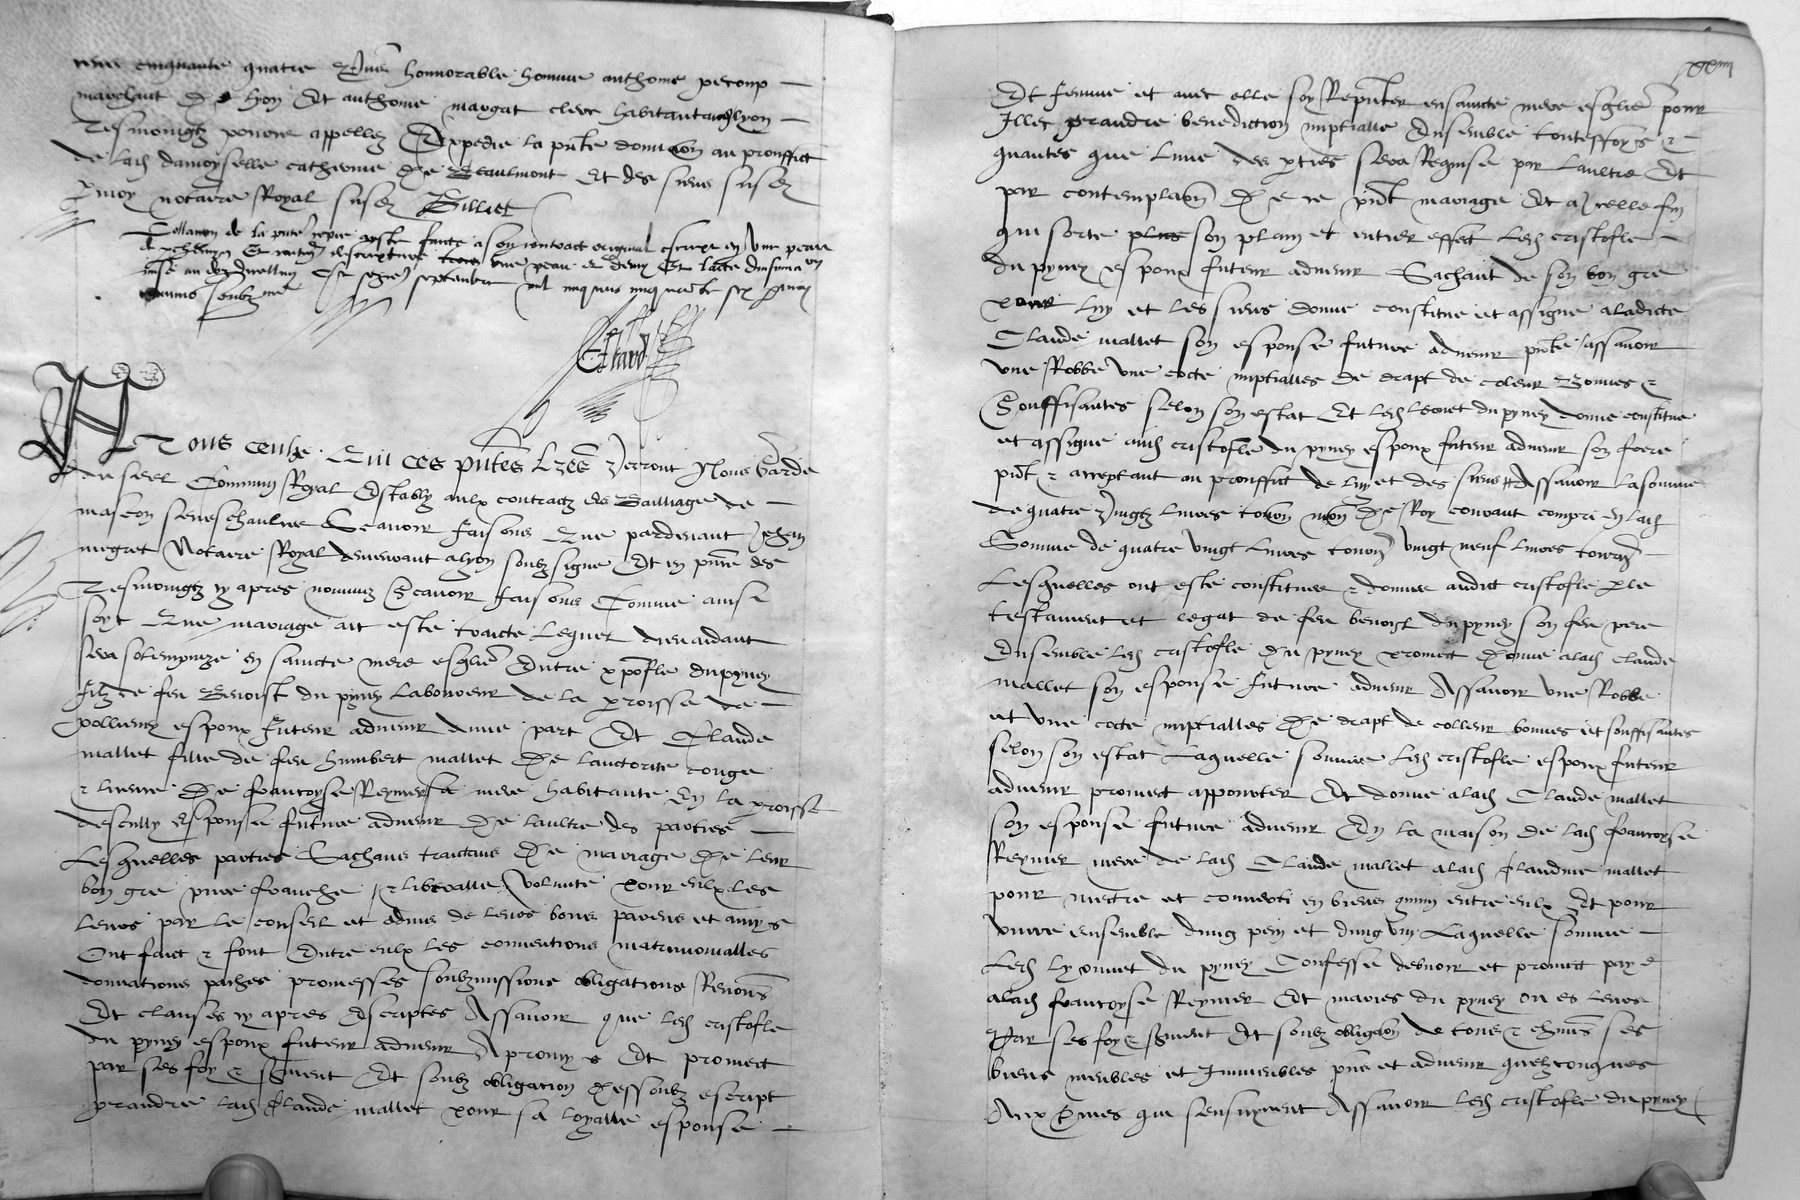 cinquante quatre honnorable homme anthoine
marchant de lyon Et anthoine margat clerc habitant lyon
Tesmoingtz appellez Expedie la pnte donacon au prouffict
de lad damoyselle catherine de Beaulmont Et des siens susd
Par moy notaire Royal susd Gilliet
Collation de la pnte coppie a este faicte a son contract original escript en une peau
Et une peau et demy Et
septembre mil cinq cens cinquante six
soubz
A Tous ceulx Qui ces pntes Lres verront Nous Garde
du seel Commun Royal Estably aulx contractz du Bailliage de
mascon seneschaulcee Scavoir faisons Que pardevant Jehan
megret Notaire Royal demeurant a lyon soubz signe Et en pnce des
Tesmoingtz cy apres nommez Scavoir faisons Comme ainsi
soyt Que mariage ait este traicte Lequel dieu aidant
sera solempnize en saincte mere esglise Entre xpofle du pyney
filz de feu Benoist du pyney Laboureur de la proisse de
pollieney espoux futeur advenir dune part Et Claude
mallet fille de feu humbert mallet De lauctorite conge
et licence De francoyse Reynier sa mere habitante En la proisse
descully Espouse future advenir De laultre des parties
Lesquelles parties Sachans traictans De mariage De leur
bon gre pure franche et liberalle volunte pour eulx les
leurs par le conseil et advis de leurs bons parens et amys
Ont faict et font Entre eulx les conventions matrimonialles
donnations paches promesses soubzmissions obligations Renons
Et clauses cy apres Escriptes Assavoir que led cristofle
du pyney espoux futeur advenir A promys Et promect
par ses foy et serment Et soubz obligacion dessoubz escript
prandre lad Claude mallet pour sa loyalle espouse
Et femme et avec elle soy Repnter en saincte mere esglise pour
Illec prandre benediction nuptialle Ensemble touteffoys et
quantes que lune des pties sera Requise par laultre Et
par contemplaon De ce pnt mariage Et a ycelle fin
qui sorte plus son plain et entier effect Led cristofle
du pyney espoux futeur advenir Sachant de son bon gre
pour luy et les siens donne constitue et assigne a ladicte
Claude mallet son espouse future advenir pnte assavoir
une Robbe une cocte nuptialles de drapt de coleur Bonnes et
Souffisantes selon son estat Et led leonet du pyney donne constitue
et assigne aud cristofle du pyney espoux futeur advenir son frere
pnt et acceptant au prouffict de luy et des siens Assavoir la somme
de quatre vingtz livres tournois mon De Roy courant compris en lad
Somme de quatre vingt livres tournois vingt neuf livres tournois
Lesquelles ont este constituees et donnees audict cristofle p le
testament et legat de feu benoist du pyney son feu pere
Ensemble led cristofle du pyney promect donne a lad claude
mallet son espouse future advenir Assavoir une Robbe
et une cocte nuptialles De drapt de colleur bonnes et souffisantes
selon son estat Laquelle somme led cristofle espoux futeur
advenir promect apporter Et donne a lad Claude mallet
son espouse future advenir En la maison de lad francoyse
Reynier mere de lad Claude mallet a lad Claudine mallet
pour mectre et converti en biens qmun entre eulx Et pour
vivre ensemble dung pain et dung vin Laquelle somme
Led lyonnet du pyney Confesse debvoir et promect paye
a lad francoyse Reynier Et maries du pyney ou es leurs
Par ses foy et serment Et soubz obligaon de tous et chmns ses
biens meubles et Immeubles pns et advenir quelzconques
Aux tmes qui sensuyvent Assavoir led cristofle du pyney